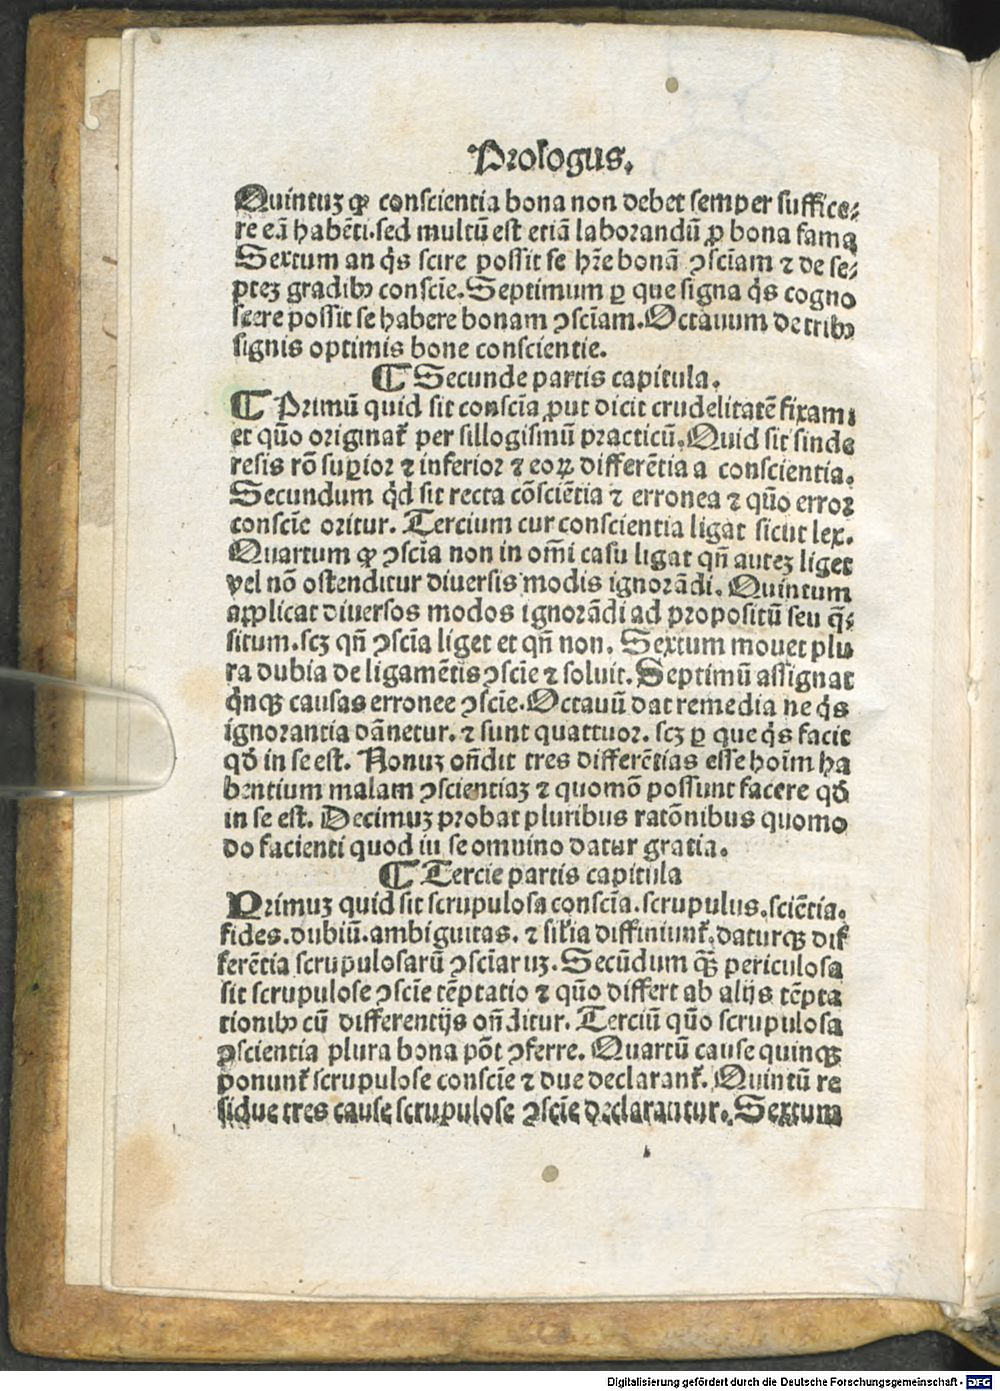 Prologus.
Quintuꝫ ꝙ conscientia bona non debet semper suffice⸗
re eã habẽti. sed multũ est etiã laborandũ ꝓ bona fama
Sextum an q̃s scire possit se hr̃e bonã ↄsciãm ⁊ de se⸗
pteꝫ gradibꝰ conscie. Septimum ꝑ que signa q̃s cogno
scere possit se habere bonam ↄsciãm. Octauum de tribꝰ
signis optimis bone conscientie.
¶ Secunde partis capitula.
¶ Primũ quid sit consciã ꝓut dicit crudelitatẽ fixam:
et quõ originat᷑ per sillogismũ practicũ. Quid sit sinde
resis rõ suꝑior ⁊ inferior ⁊ eoꝝ differẽtia a conscientia.
Secundum qd̃ sit recta cõsciẽtia ⁊ erronea ⁊ quõ error
conscie oritur. Tercium cur conscientia ligat sicut lex.
Quartum ꝙ ↄsciã non in om̃i casu ligat qñ auteꝫ liget
vel nõ ostenditur diuersis modis ignorãdi. Quintum
applicat diuersos modos ignorãdi ad propositũ seu q̃⸗
situm. scꝫ qñ ↄsciã liget et qñ non. Sextum mouet plu
ra dubia de ligamẽtis ↄscie ⁊ soluit. Septimũ assignat
q̃nqꝫ causas erronee ↄscie. Octauũ dat remedia ne q̃s
ignorantia dãnetur. ⁊ sunt quattuor. scꝫ ꝑ que q̃s facit
qd̃ in se est. Nonuꝫ oñdit tres differẽtias esse hoim̃ ha
bentium malam ↄscientiaꝫ ⁊ quomõ possunt facere qd̃
in se est. Decimuꝫ probat pluribus ratõnibus quomo
do facienti quod in se omnino datur gratia.
¶ Tercie partis capitula
Primuꝫ quid sit scrupulosa consciã. scrupulus. sciẽtia.
fides. dubiũ. ambiguitas. ⁊ sil̃ia diffiniunt᷑. daturqꝫ dif
ferẽtia scrupulosarũ ↄsciãruꝫ. Secũdum qꝫ̃ periculosa
sit scrupulose ↄscie tẽptatio ⁊ quõ differt ab alijs tẽpta
tionibꝰ cũ differentijs oñditur. Terciũ quõ scrupulosa
ↄscientia plura bona põt ↄferre. Quartũ cause quinqꝫ
ponunt᷑ scrupulose conscie ⁊ due declarant᷑. Quintũ re
sidue tres cause scrupulose ↄscie declarantur. Sextum
Digitalisierung gefördert durch die Deutsche Forschungsgemeinschaft - DFG